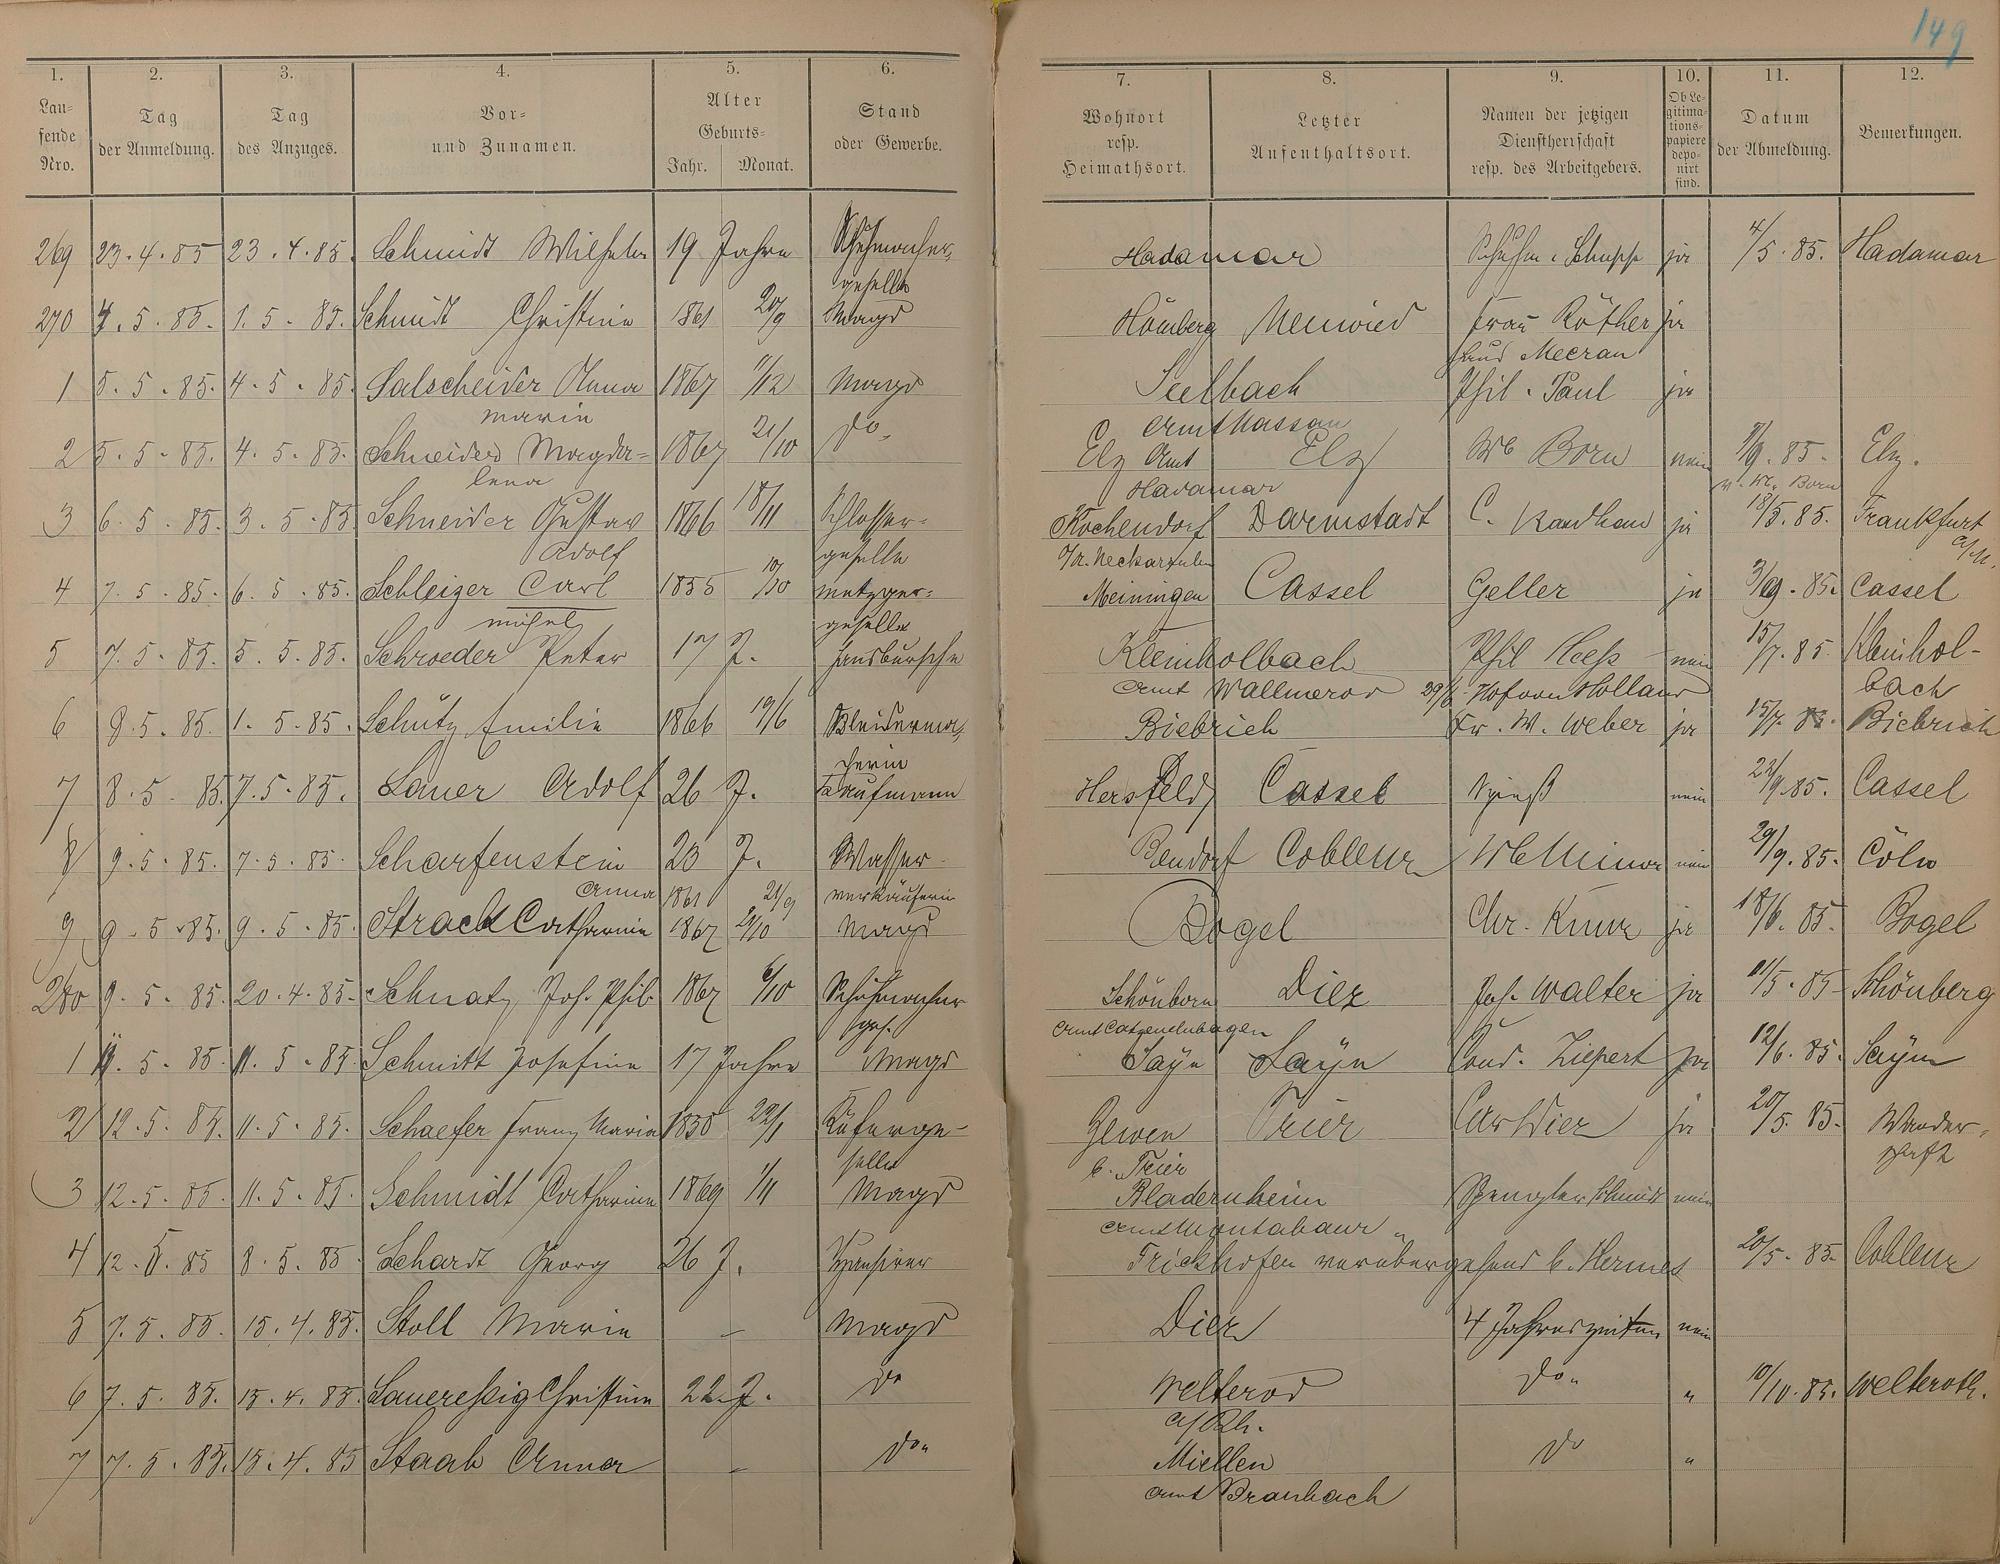 149
1. 2. 3. 4. 5. 6. 7. 8. 9. 10. 11. 12.
Lau-
fende
Nro.
Tag
der Anmeldung.
Tag
des Anzuges.
Vor-
und Zunamen.
Alter
Geburts-
Jahr. Monat.
Stand
oder Gewerbe.
Wohnort
resp.
Heimathsort.
Letzter
Aufenthaltsort.
Namen der jetzigen
Dienstherrschaft
resp. des Arbeitgebers.
Ob Le-
gitima-
tions-
papiere
depo-
nirt
sind.
Datum
der Abmeldung.
Bemerkungen.
269 23.4.85 23.4.85. Schmidt Wilhelm 19 Jahre Schuhmacher- Hadamar Schuhm. Schupp ja 4/5.85. Hadamar
geselle
270 4.5.85. 1.5.85. Schmidt Christine 1861 20/9 Magd Hömberg Neuwied Frau Röther ja
Haus Meeran
1 5.5.85. 4.5.85. Salscheider Anna 1867 11/12 Magd Seelbach Phil. Paul ja
Marie Amt Nassau
2 5.5.85. 4.5.85. Schneider Magda- 1867 21/10 do. Elz Amt Elz We Born nein 9/9.85. Elz.
lena Hadamar v. We. Born
3 6.5.85. 3.5.85 Schneider Gustav 1866 18/11 Schlosser- Kochendorf Darmstadt C. ja 18/5.85. Frankfurt
Adolf geselle O/A. Neckarsulm a/M.
4 7.5.85. 6.5.85. Schleizer Carl 1855 10/10 Metzger- Meiningen Cassel Geller ja 3/9.85. Cassel
Michel geselle
5 7.5.85. 5.5.85. Schroeder Peter 17 J. Hausbursche Kleinholbach Phil Heeß nein 15/7.85. Kleinhol-
Amt Wallmerod 29/6. Hof von Holland bach
6 8.5.85. 1.5.85. Schütz Emilie 1866 19/6 Kleiderma- Biebrich Fr. W. Weber ja 15/7.85. Biebrich
cherin
7 8.5.85. 7.5.85. Sauer Adolf 26 J. Kaufmann Hersfeld Cassel nein 22/9.85. Cassel
8 9.5.85. 7.5.85. Scharfenstein 23 J. Wasser- Bendorf Coblenz We Minor nein 29/9.85. Cöln
Anna 1861 21/9 verkäuferin
9 9.5.85. 9.5.85. Strack Catharina 1867 21/10 Magd Bogel Chr. Kunz ja 18/6.85. Bogel
280 9.5.85. 20.4.85. Schnatz Joh. Phil. 1867 6/10 Schuhmacher Schönborn Diez Joh. Walter ja 11/5.85 Schönberg
ges. Amt Catzenelnbogen
1 11.5.85. 11.5.85. Schmitt Josefine 17 Jahre Magd Sayn Sayn Cond. Ziepert ja 12/6.85. Sayn
2 12.5.85. 11.5.85. Schaefer Franz Maria 1850 22/1 Küferge- Zewen Trier Carl Dier ja 20/5.85. Wander-
selle b. Trier schaft
3 12.5.85. 11.5.85. Schmidt Catharina 1869 1/11 Magd Bladernheim Spengler Schmidt nein
Amt Montabaur
4 12.5.85 8.5.85. Schardt Georg 26 J. Hausirer Frickhofen vorübergehend b. Hermes 20/5.85. Coblenz
5 7.5.85. 15.4.85. Stoll Marie – Magd Diez 4 Jahreszeiten nein
6 7.5.85. 15.4.85. Saueressig Christine 22 J. do Welterod do. " 10/10.85. Welteroth.
a/Rh.
7 7.5.85. 15.4.85 Staab Anna – do. Miellen do "
Amt Braubach